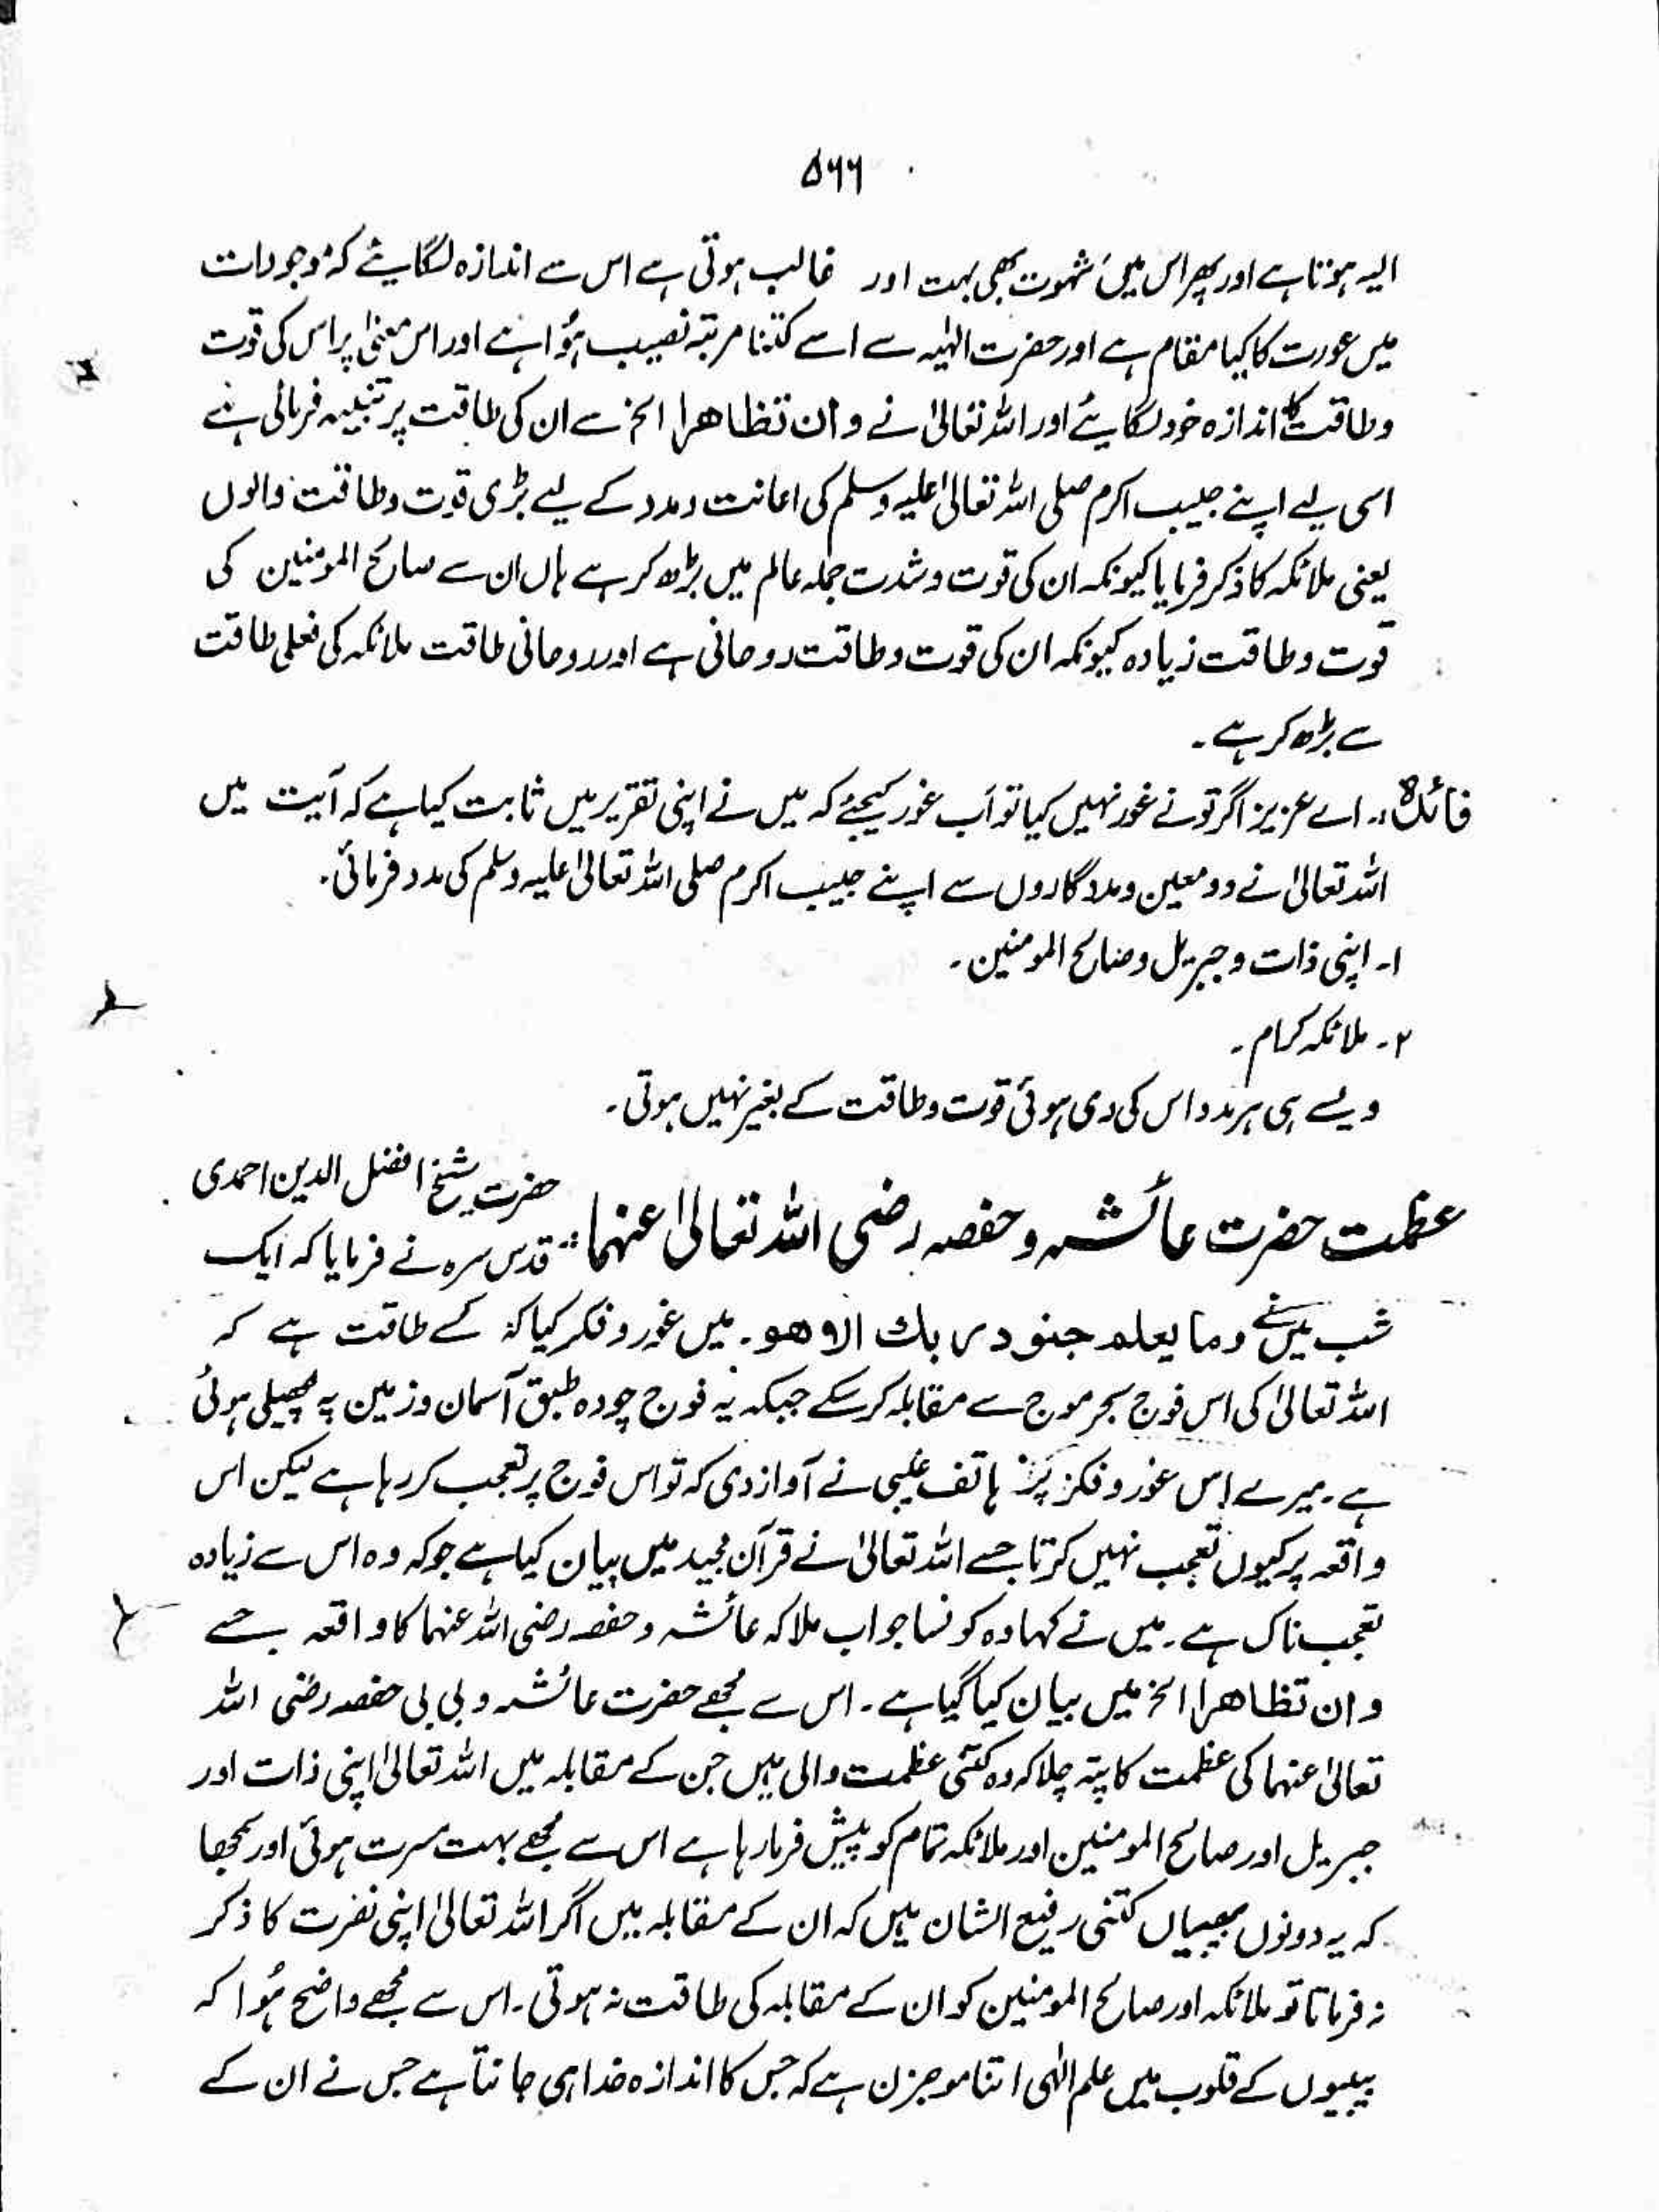 ۵۶۶
الیہ ہوتا ہے اور پھر اس میں شہوت بھی بہت اور غالب ہوتی ہے اس سے اندازہ لگائیے کہ موجودات
میں عورت کا کیا مقام ہے اور حضرت الٰہیہ سے اسے کتنا مرتبہ نصیب ہُوا ہے اور اس معنیٰ پر اس کی قوت
وطاقت کا اندازہ خود لگائیے اور اللہ تعالیٰ نے وان تظاھرا الخ سے ان کی طاقت پر تنبیہ فرمائی ہے
اسی لیے اپنے حبیب اکرم صلی اللہ تعالیٰ علیہ وسلم کی اعانت و مدد کے لیے بڑی قوت و طاقت والوں
یعنی ملائکہ کا ذکر فرمایا کیونکہ ان کی قوت و شدت جملہ عالم میں بڑھ کر ہے ہاں ان سے صالح المومنین کی
قوت و طاقت زیادہ کیونکہ ان کی قوت و طاقت روحانی ہے اور روحانی طاقت ملائکہ کی فعلی طاقت
سے بڑھ کر ہے۔
فائدہ:۔ اے عزیز اگر تو نے غور نہیں کیا تو اَب غور کیجئے کہ میں نے اپنی تقریر میں ثابت کیا ہے کہ آیت میں
اللہ تعالیٰ نے دو معین و مددگاروں سے اپنے حبیب اکرم صلی اللہ تعالیٰ علیہ وسلم کی مدد فرمائی۔
۱۔ اپنی ذات و جبریل و صالح المومنین۔
۲۔ ملائکہ کرام۔
ویسے ہی ہر مدد اس کی دی ہوئی قوت و طاقت کے بغیر نہیں ہوتی۔
عظمت حضرت عائشہ و حفصہ رضی اللہ تعالیٰ عنہما: حضرت شیخ افضل الدین احمدی
قدس سرہ نے فرمایا کہ ایک
شب میں نے وما یعلم جنود ربك الا ھو۔ میں غور و فکر کیا کہ کسے طاقت ہے کہ
اللہ تعالیٰ کی اس فوج بحر موج سے مقابلہ کر سکے جبکہ یہ فوج چودہ طبق آسمان و زمین پہ پھیلی ہوئی
ہے۔ میرے اِس غور و فکر پر ہاتف غیبی نے آواز دی کہ تو اس فوج پر تعجب کر رہا ہے لیکن اس
واقعہ پر کیوں تعجب نہیں کرتا جسے اللہ تعالیٰ نے قرآن مجید میں بیان کیا ہے جو کہ وہ اس سے زیادہ
تعجب ناک ہے۔ میں نے کہا وہ کونسا جواب ملا کہ عائشہ و حفصہ رضی اللہ عنہما کا واقعہ جسے
وان تظاھرا الخ میں بیان کیا گیا ہے۔ اس سے مجھے حضرت عائشہ و بی بی حفصہ رضی اللہ
تعالیٰ عنہما کی عظمت کا پتہ چلا کہ وہ کتنی عظمت والی ہیں جن کے مقابلہ میں اللہ تعالیٰ اپنی ذات اور
جبریل اور صالح المومنین اور ملائکہ تمام کو پیش فرما رہا ہے اس سے مجھے بہت مسرت ہوئی اور سمجھا
کہ یہ دونوں بیبیاں کتنی رفیع الشان ہیں کہ ان کے مقابلہ میں اگر اللہ تعالیٰ اپنی نصرت کا ذکر
نہ فرماتا تو ملائکہ اور صالح المومنین کو ان کے مقابلہ کی طاقت نہ ہوتی۔ اس سے مجھے واضح ہُوا کہ
بیبیوں کے قلوب میں علم الٰہی اتنا موجزن ہے کہ جس کا اندازہ خدا ہی جانتا ہے جس نے ان کے